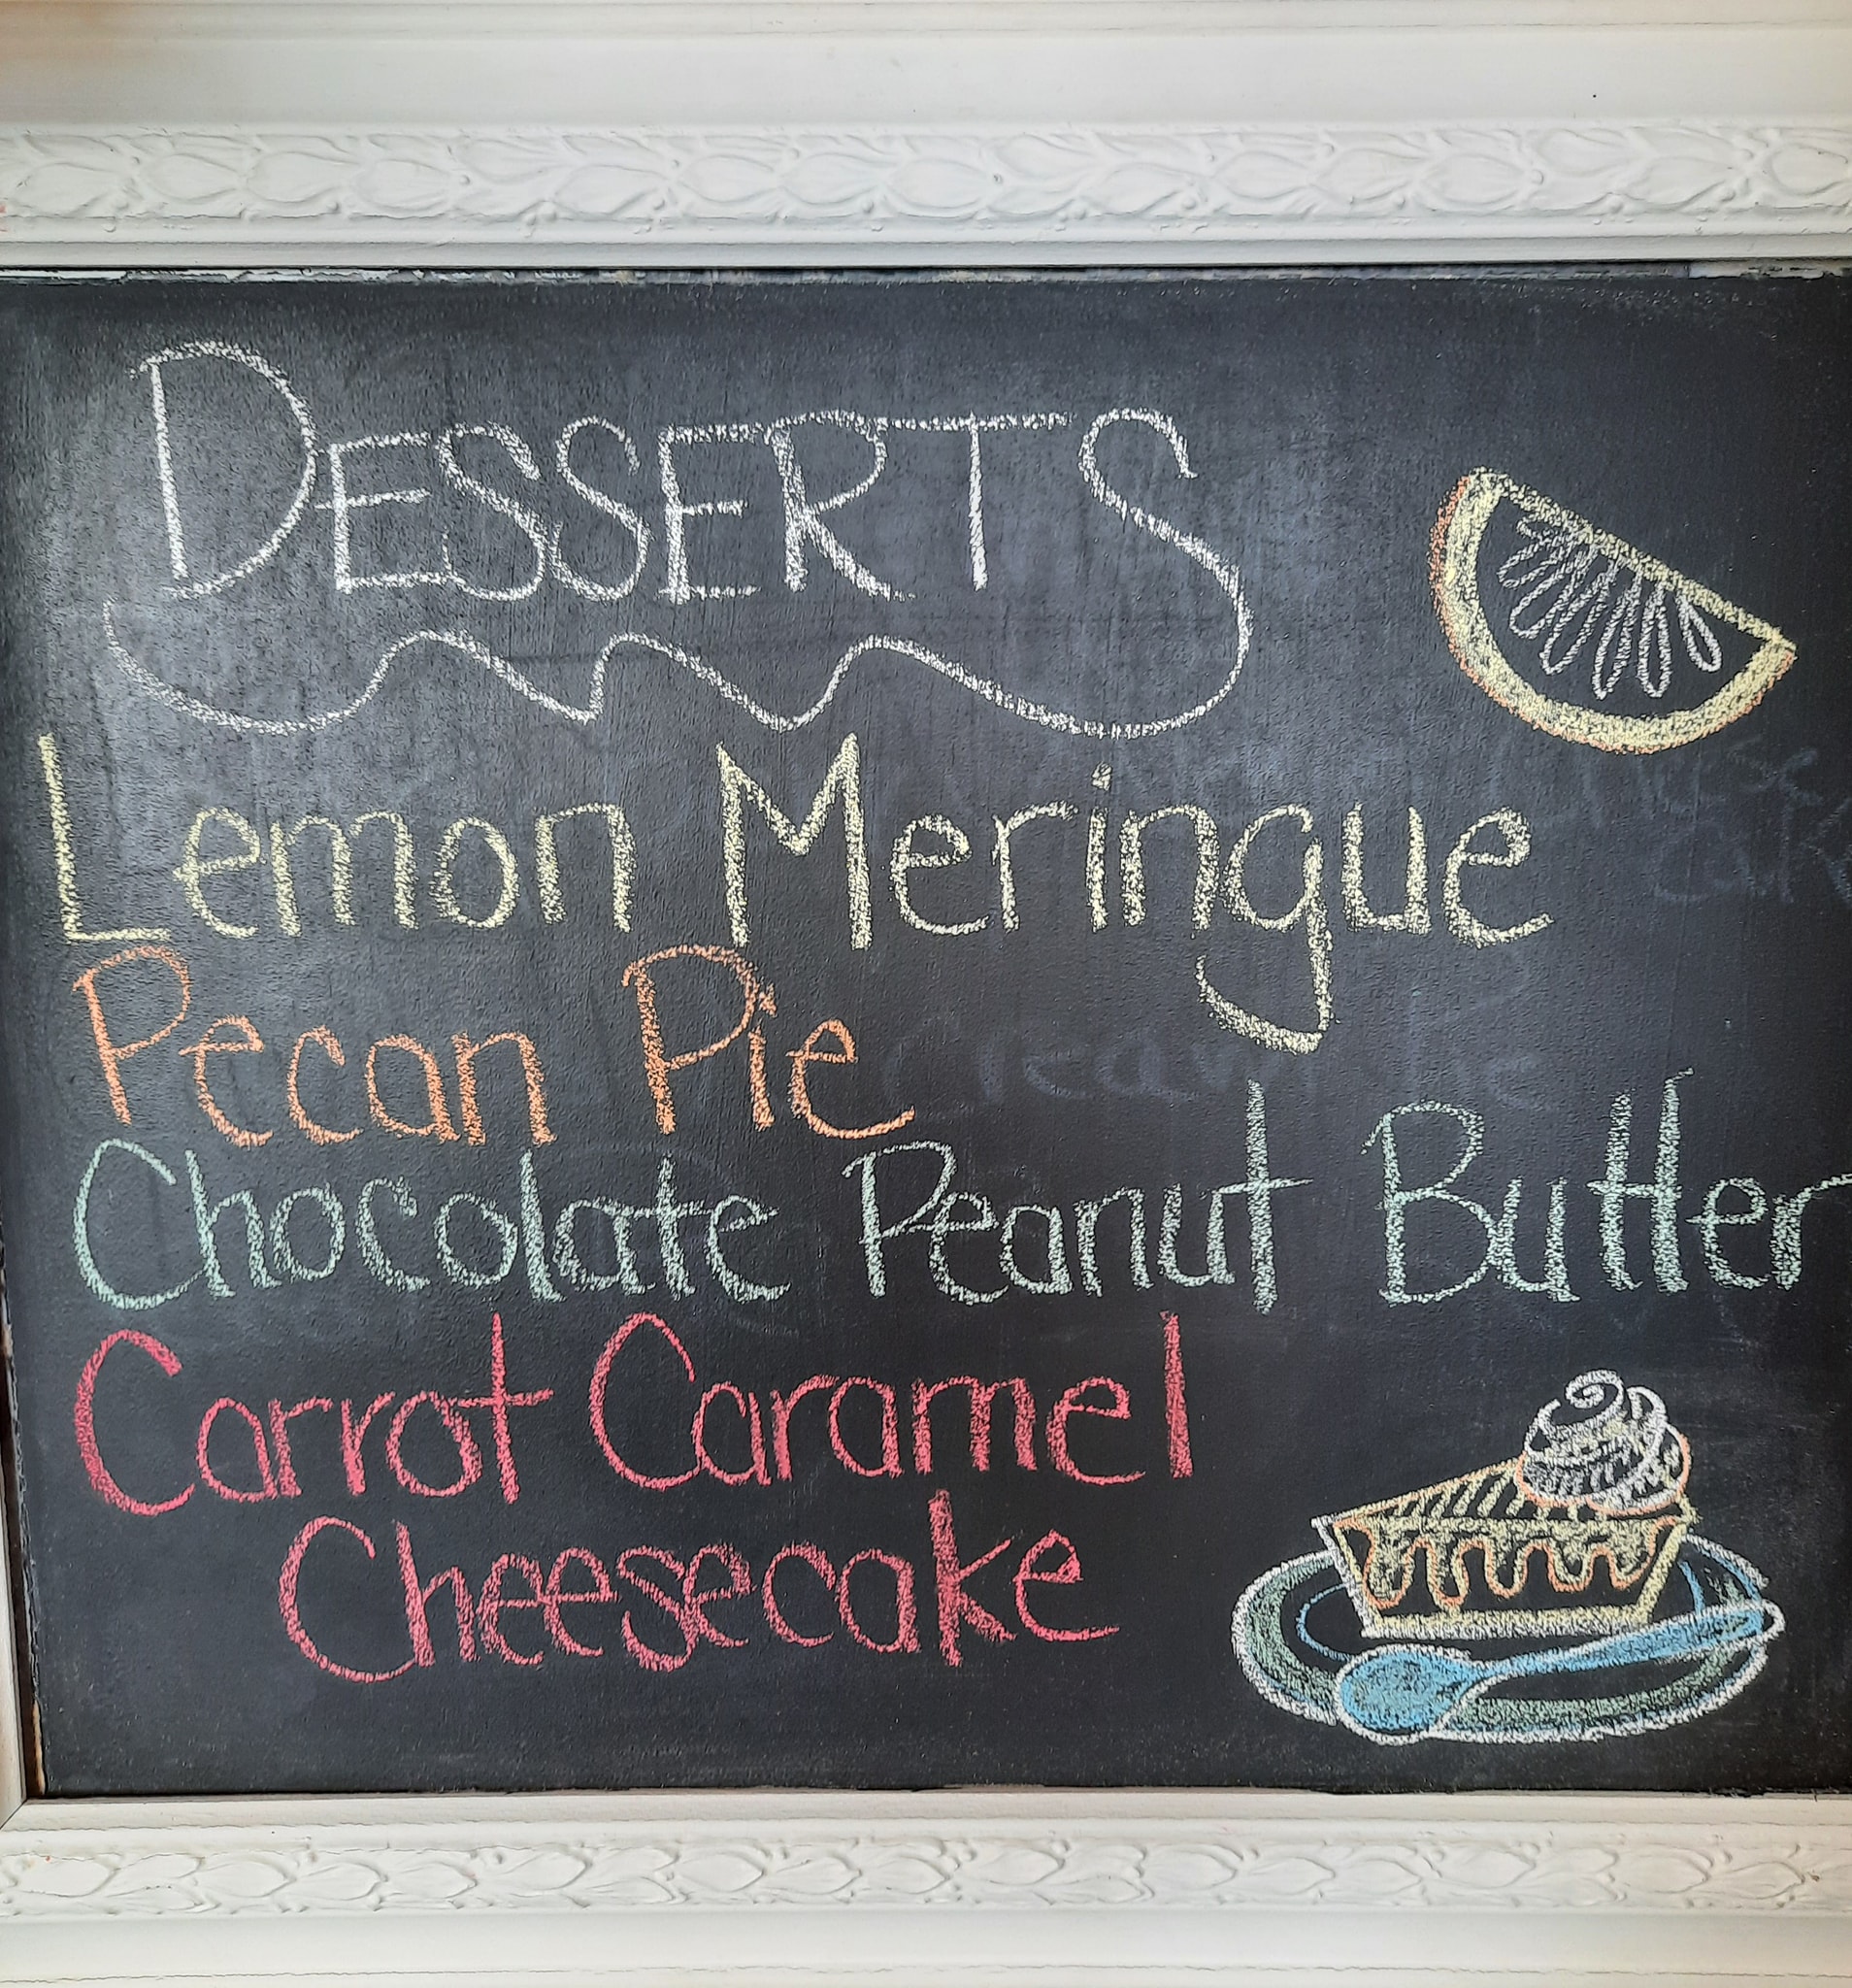 DESSERTS
Lemon Meringue
Pecan Pie
Chocolate Peanut Butter
Carrot Caramel
Cheesecake